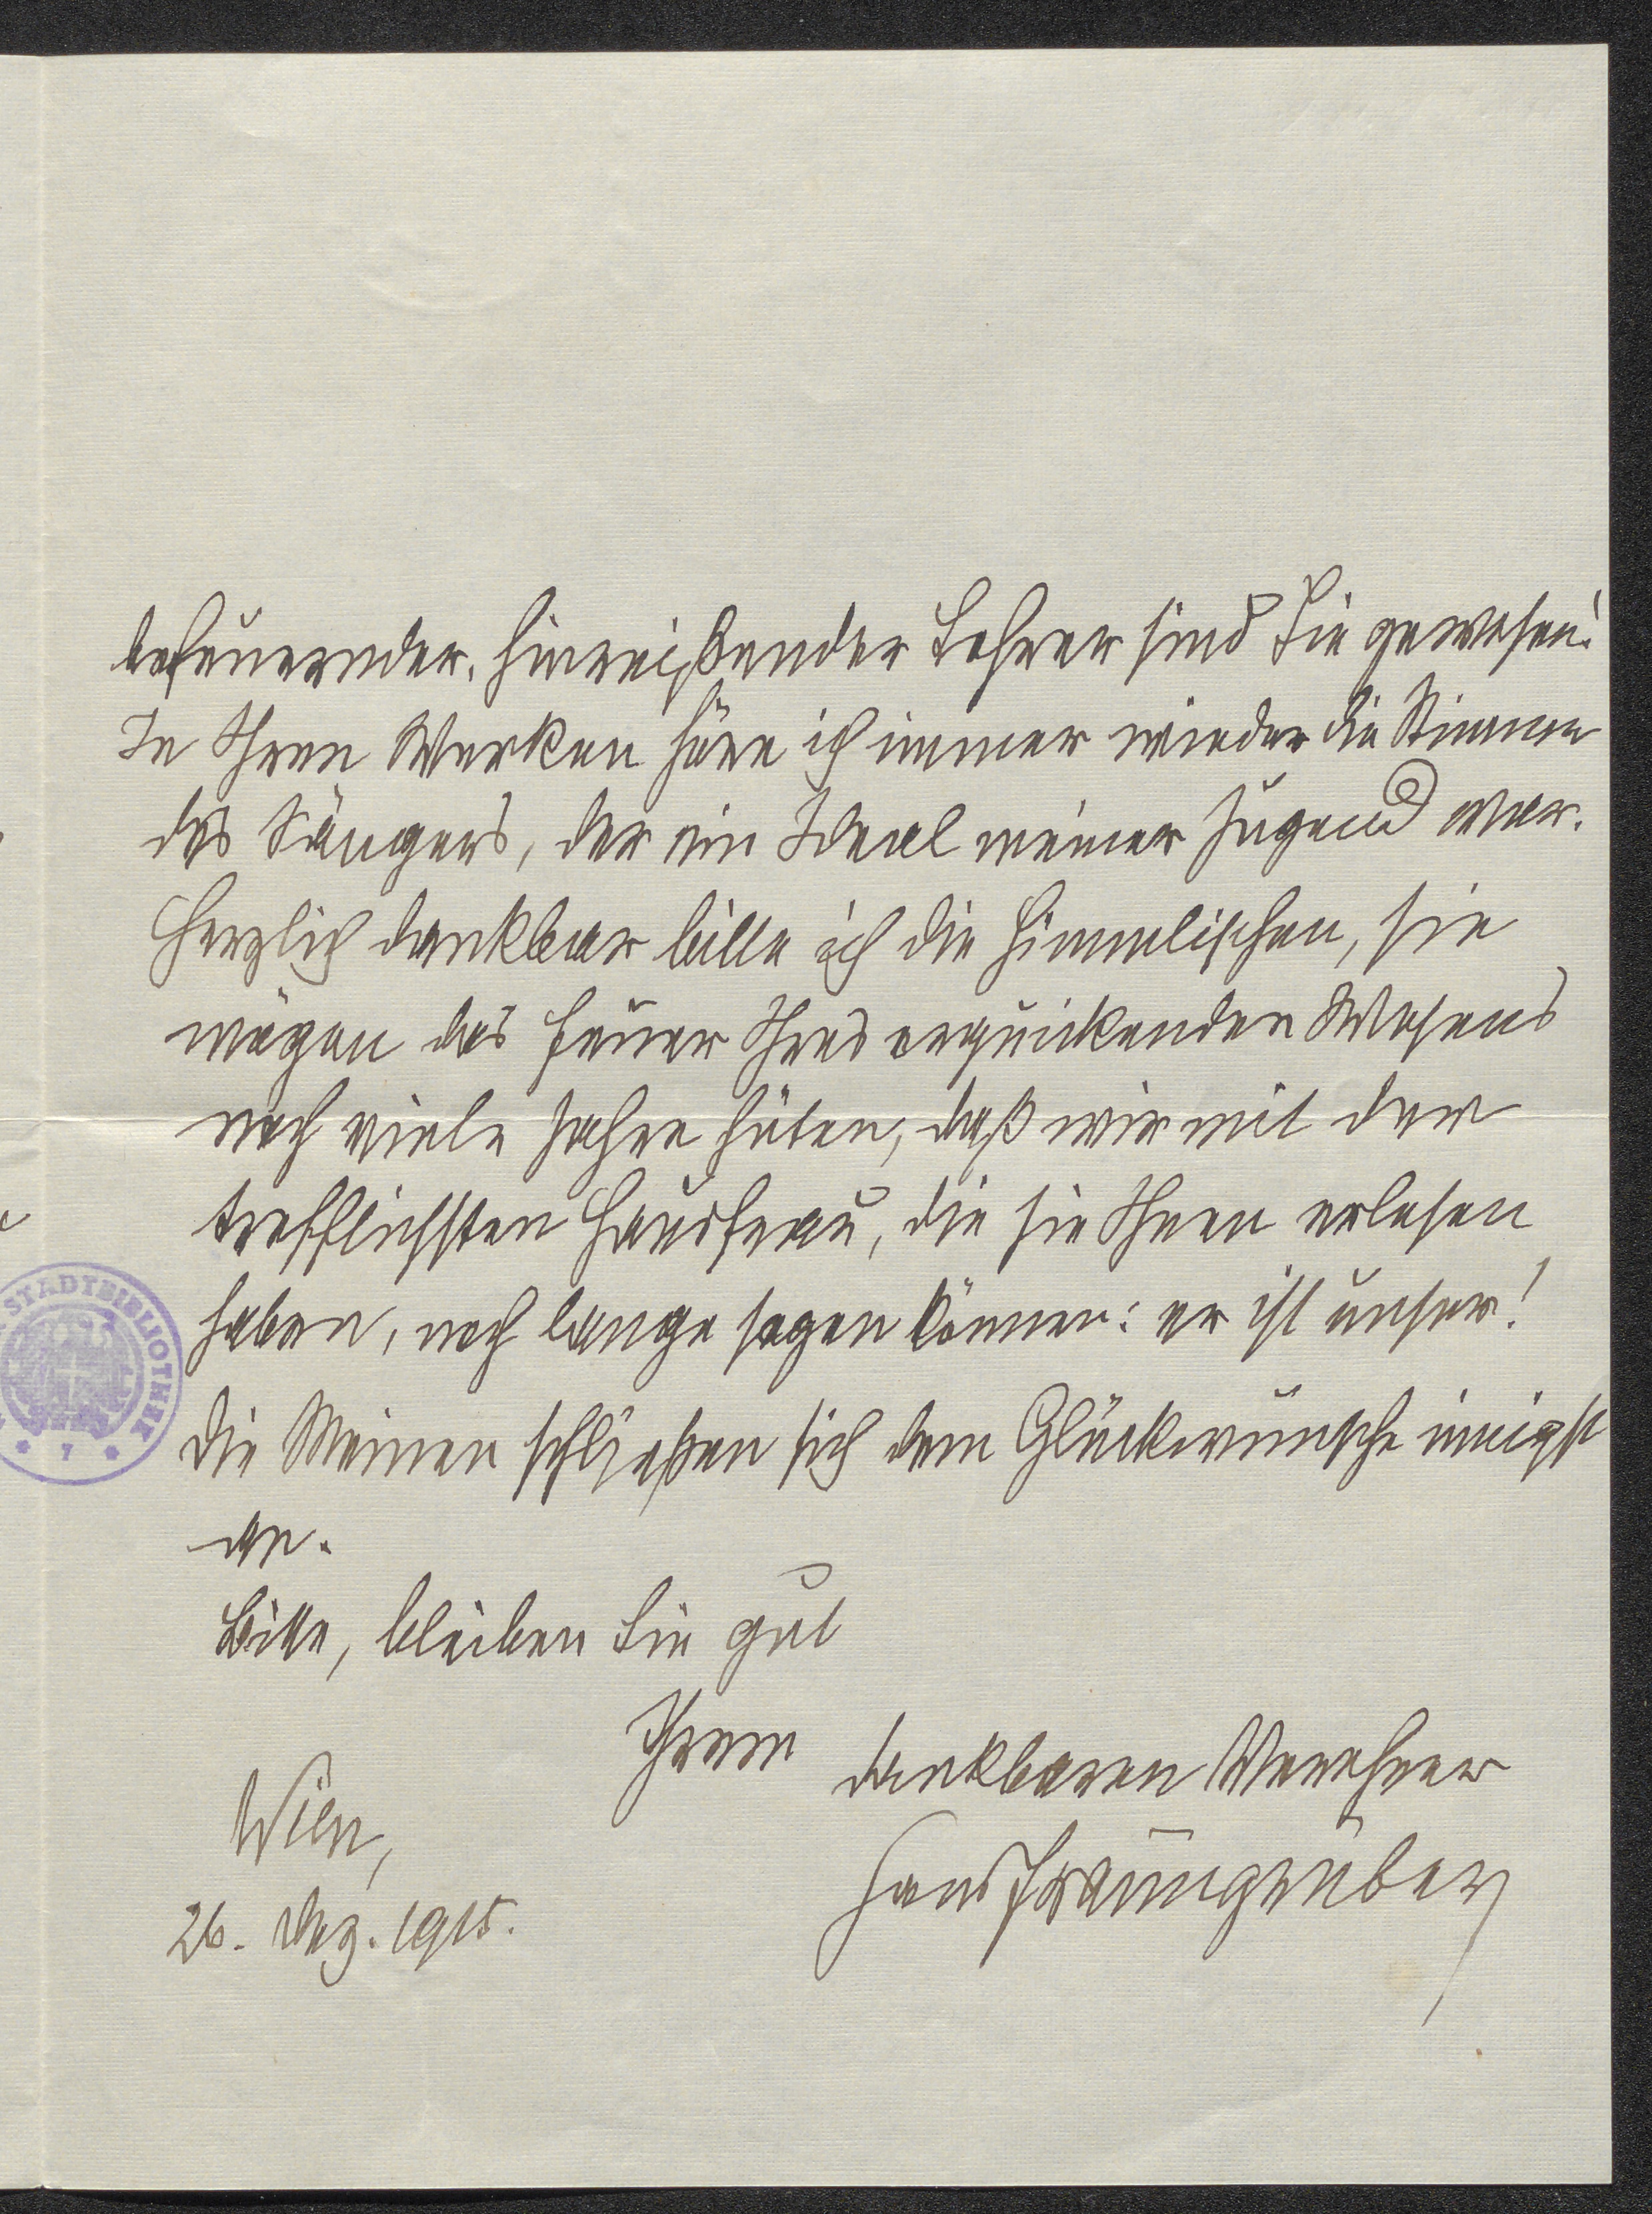 befeuernder, hinreißender Lehrer sind Sie gewesen!
In Ihren Werken höre ich immer wieder die Stimme
des Sängers, der ein Ideal meiner Jugend war.
Herzlich dankbar bitte ich die Himmlischen, sie
mögen das Feuer Ihres erquickenden Wesens
noch viele Jahre hüten, daß wir mit der
trefflichsten Hausfrau, die sie Ihnen erlesen
haben, noch lange sagen können: er ist unser!
Die Meinen schließen sich dem Glückwunsche innigst
an.
Bitte, bleiben Sie gut
Ihrem dankbaren Verehrer
Hans Fraungruber
Wien,
26. Dez. 1915.
STADTBIBLIOTHEK
* 7 *